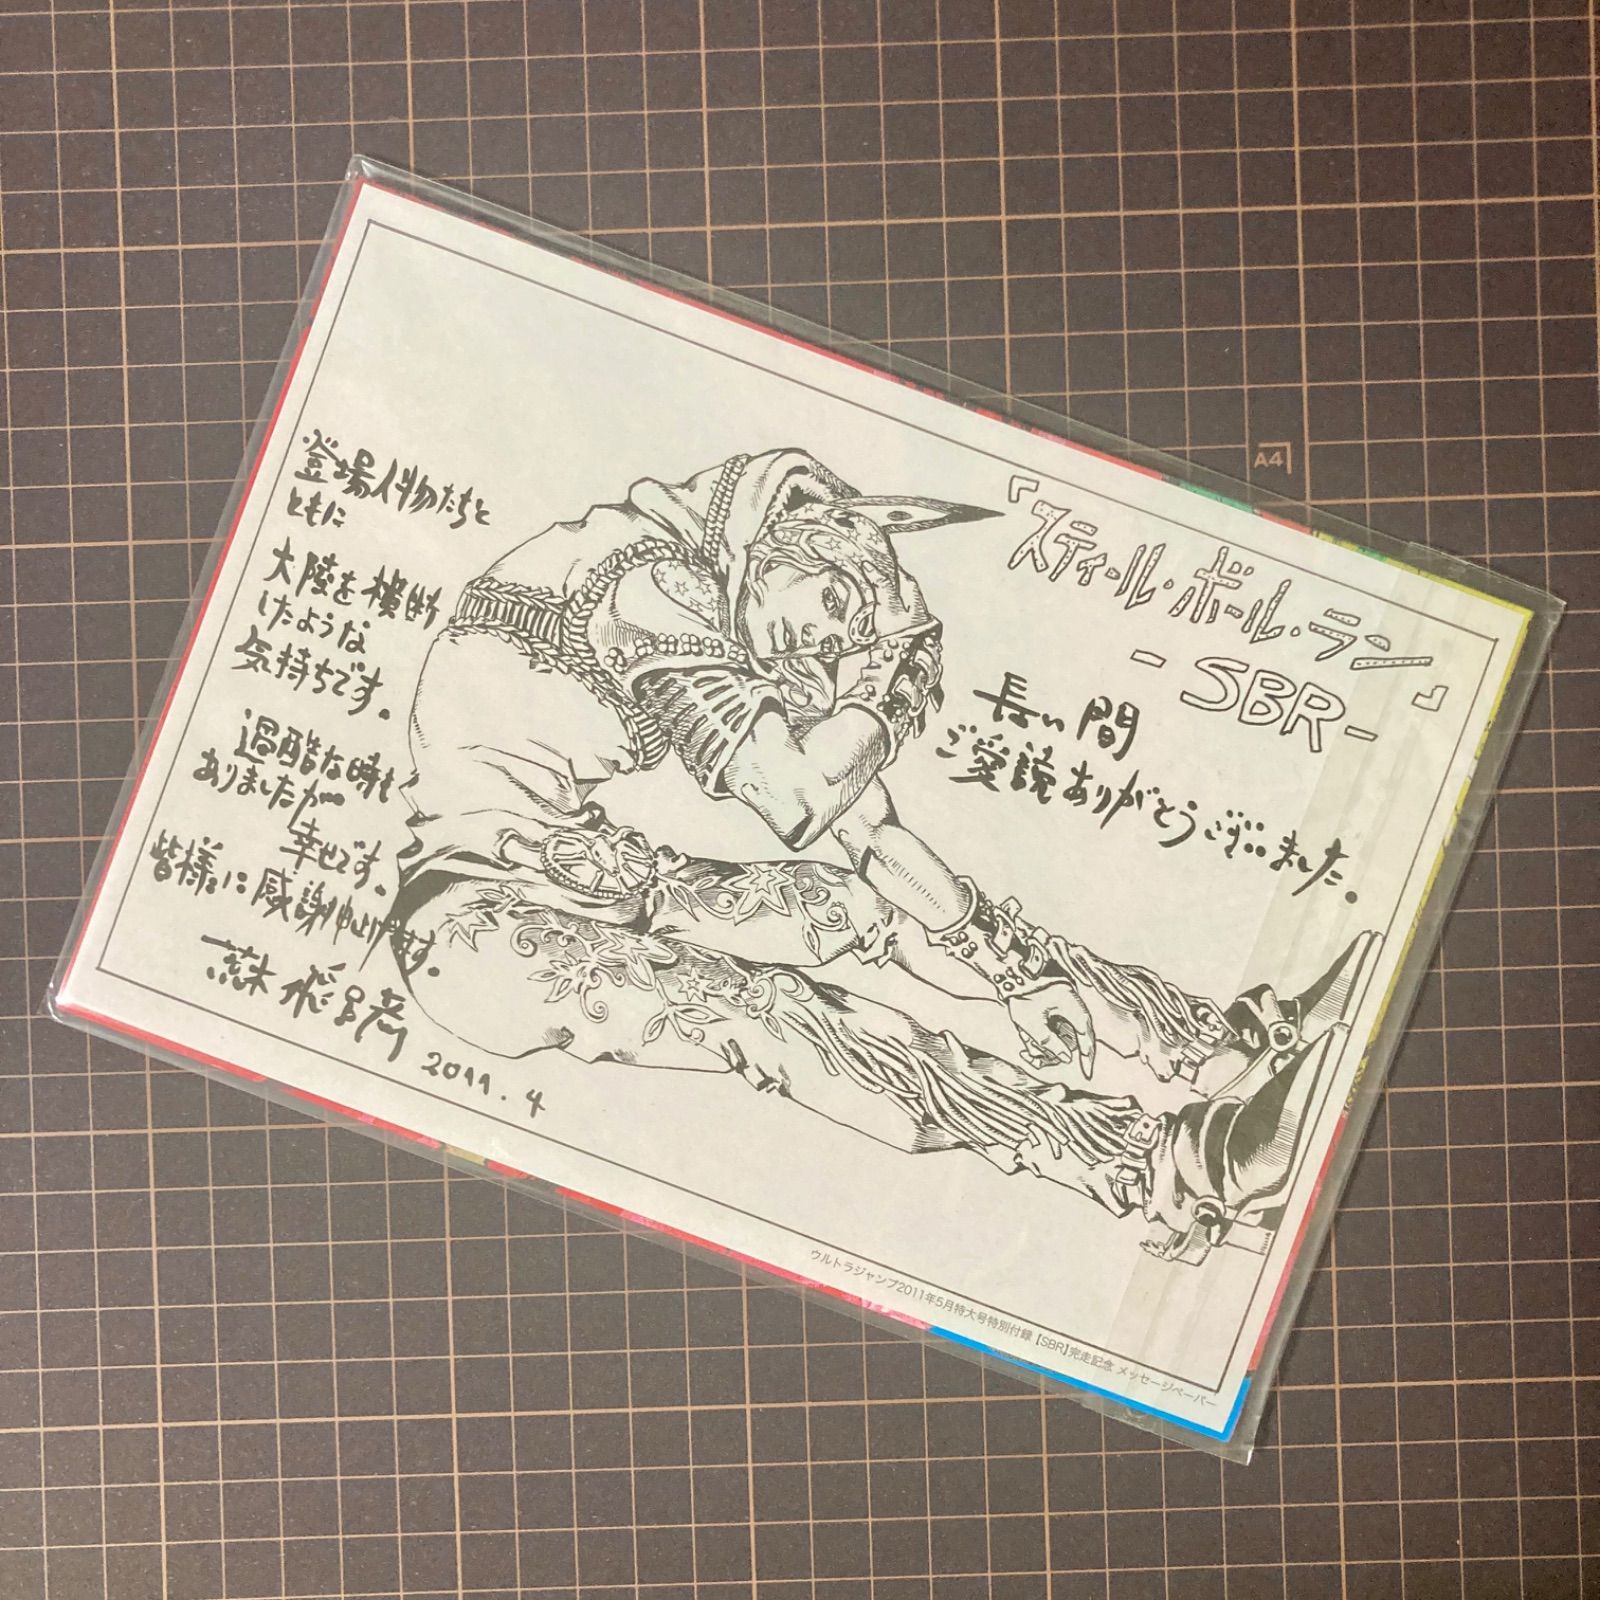 『スティール・ボール・ラン』
-SBR-
長い間
ご愛読ありがとうございました。
登場人物たちと
ともに
大陸を横断
したような
気持ちです。
過酷な時も
ありましたが
幸せです。
皆様に感謝申し上げます。
荒木飛呂彦
2011.4
ウルトラジャンプ2011年5月特大号特別付録【SBR】完走記念 メッセージペーパー
A4